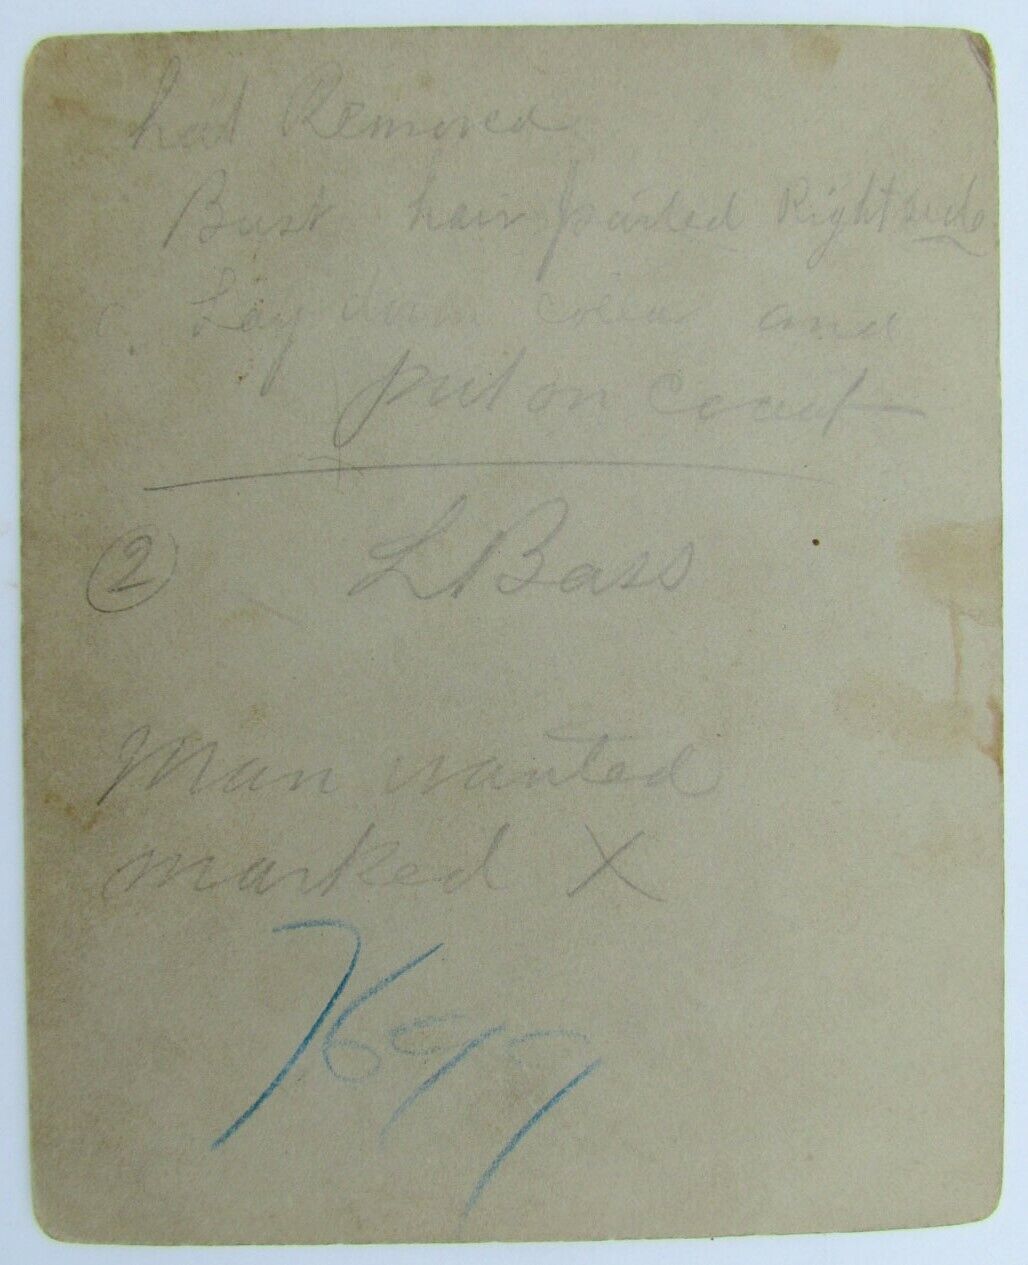 hat Removed
Bust hair parted Right side
Lay down collar and
put on Coat
② L Bass
Man wanted
marked X